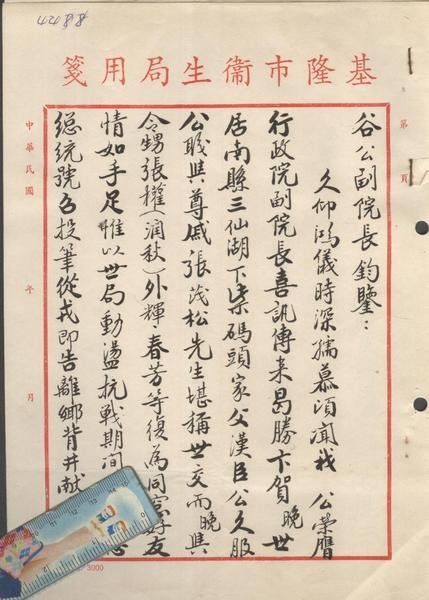 基隆市衞生局用箋
第　頁
谷公副院長鈞鑒：
久仰鴻儀時深孺慕頃聞我　公榮膺
行政院副院長喜訊傳来曷勝卞賀晚世
居南縣三仙湖下柴碼頭家父漢臣公久服
公職與尊戚張茂松先生堪稱世交而晚與
令甥張權（润秋）外輝·春芳等復為同窓好友
情如手足惟以世局動盪抗戰期間
總統號召投筆從戎即告離鄉背井献
中華民國　年　月
3000